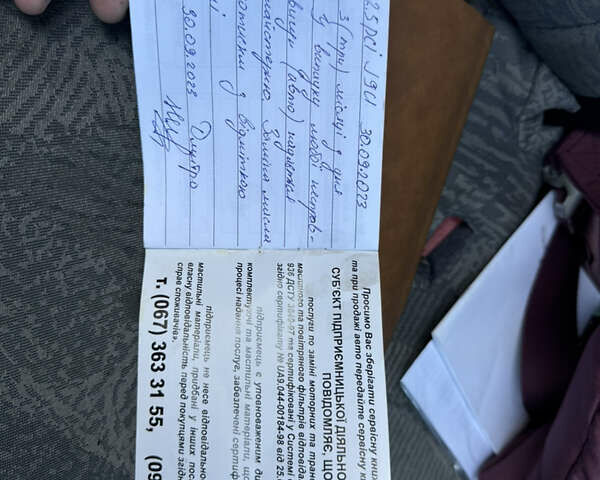 30.09.2023
3 (три) місяці з дня
випуску любої несправ-
(авто)
Заміна масла
з відміткою
30.09.2023 Дмитро
Просимо Вас зберігати сервісну книж
та при продажі авто передайте сервісну к
СУБ'ЄКТ ПІДПРИЄМНИЦЬКОЇ ДІЯЛЬНО
ПОВІДОМЛЯЄ, ЩО
послуги по заміні моторних та тран
масляного та повітряного фільтрів відповіда
936 ДСТУ та сертифіковані у Системі
згідно сертифікату № UA9.044-00184-98 від 25.
підприємець є уповноваженим ди
комплектуючі та мастильні матеріали, що
процесі надання послуг, забезпечені сертиф
підприємець не несе відповідально
мастильні матеріали, придбані у інших пос
власну відповідальність перед покупцями згідн
справ споживачів».
т. (067) 363 31 55, (09